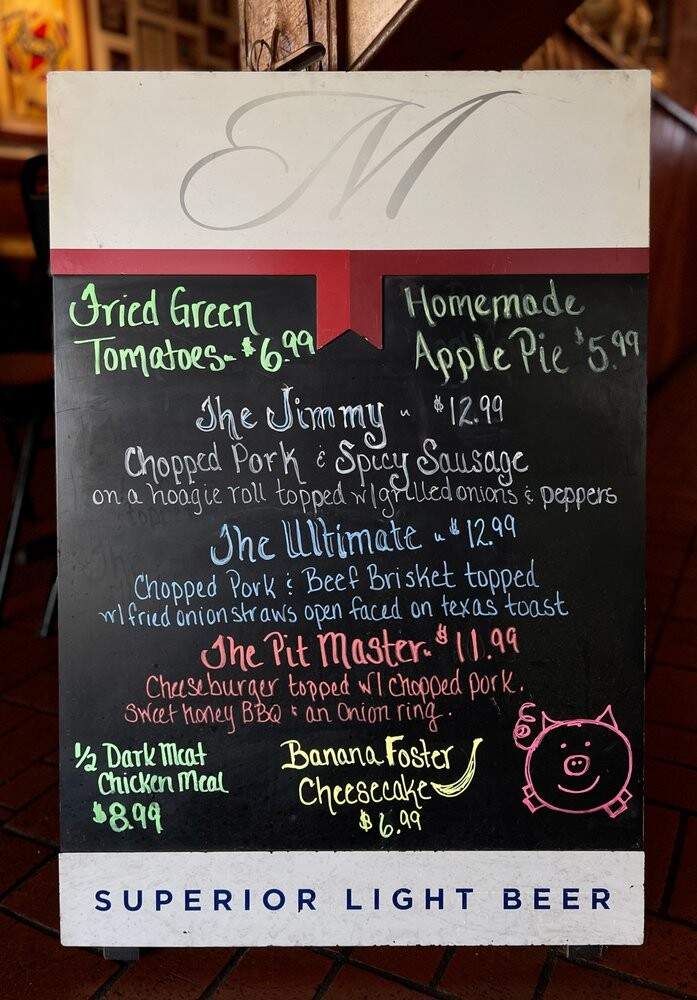 M
Fried Green
Tomatoes - $6.99
Homemade
Apple Pie $5.99
The Jimmy - $12.99
Chopped Pork & Spicy Sausage
on a hoagie roll topped w/grilled onions & peppers
The Ultimate - $12.99
Chopped Pork & Beef Brisket topped
w/fried onion straws open faced on texas toast
The Pit Master - $11.99
Cheeseburger topped w/ chopped pork.
Sweet honey BBQ & an onion ring.
1/2 Dark Meat
Chicken Meal
$8.99
Banana Foster
Cheesecake
$6.99
SUPERIOR LIGHT BEER